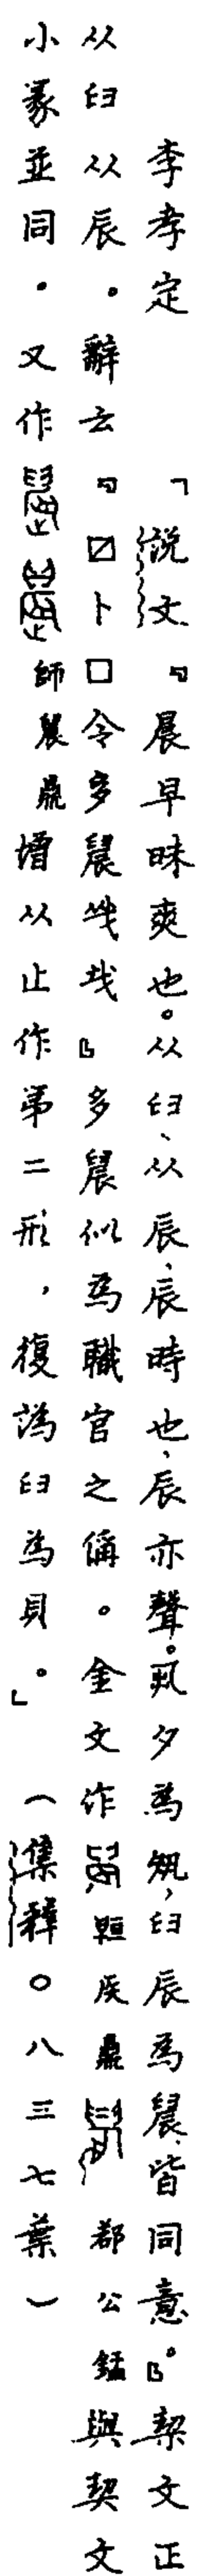 李孝定　「說文『晨早昧爽也。从臼、从辰、辰時也,辰亦聲。丮夕為𡖊,臼辰為䢅、皆同意。』栔文正
从臼从辰。辭云『☐卜☐令多䢅 』多䢅似為職官之偁。金文作 侯鼎 公 與契文
小篆並同。又作 師䢅鼎增从止作第二形,復譌臼為貝。」(集釋〇八三七葉)